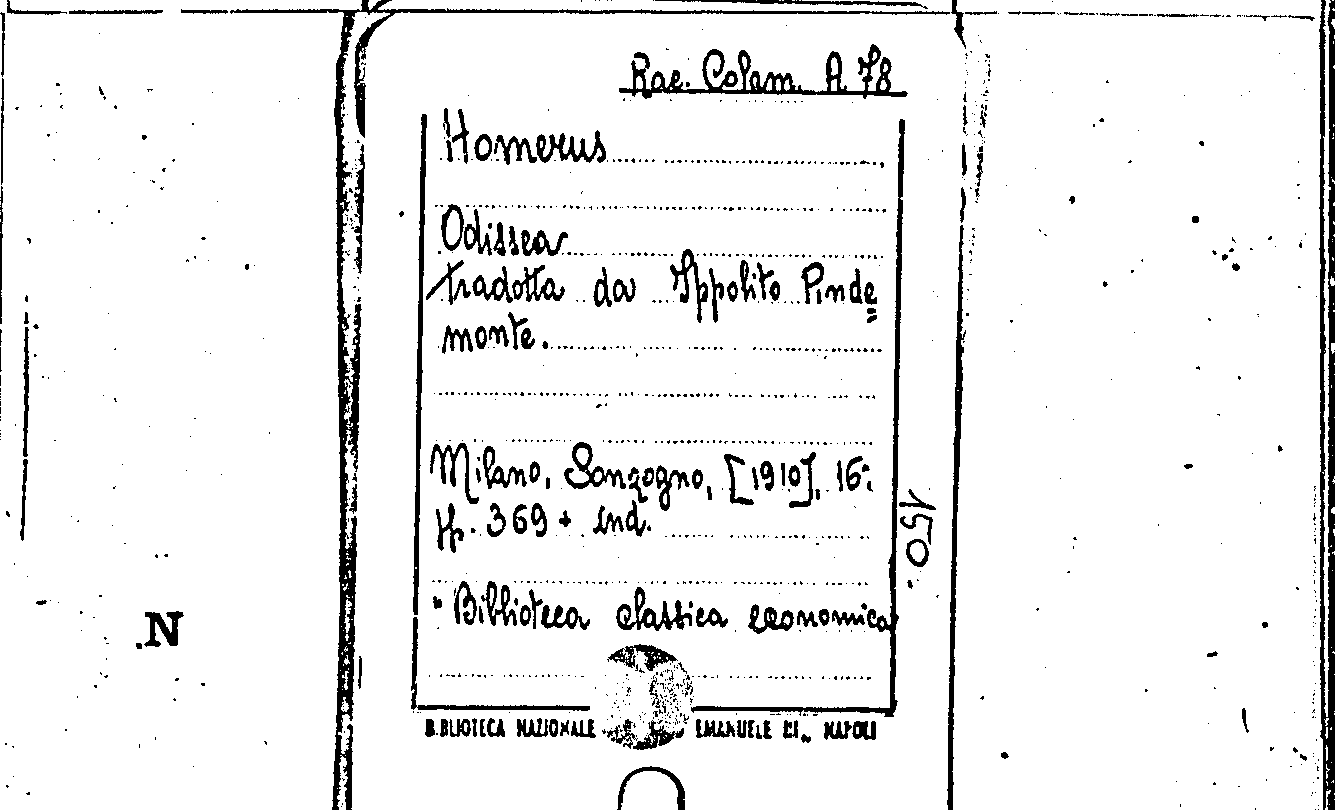 Rac. Colam. A 78
Homerus
Odissea
tradotta da Ippolito Pinde
monte.
Milano, Sonzogno, [1910], 16°.
pp. 369 + ind.
150.
"Biblioteca classica economica
BIBLIOTECA NAZIONALE EMANUELE III„ NAPOLI
N